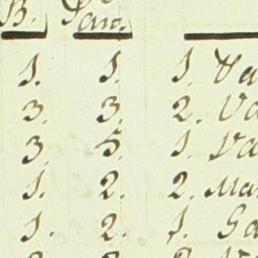 B. Pan.
1. 1. 1. Va
3. 3. 2. Va
3. 5. 1. Va
1. 2. 2. Ma
1. 2. 1. Ga